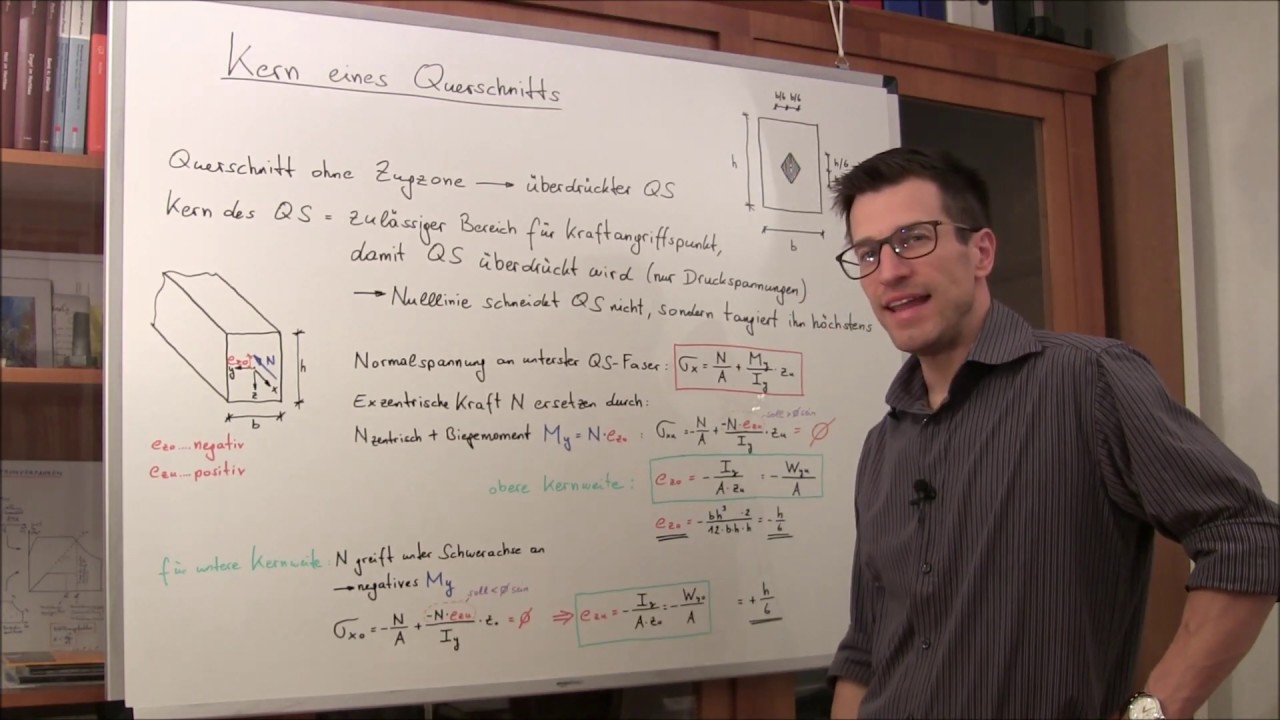 Kern eines Querschnitts
b/6 b/6
h
h/6
b
Querschnitt ohne Zugzone → überdrückter QS
Kern des QS = zulässiger Bereich für Kraftangriffspunkt,
damit QS überdrückt wird (nur Druckspannungen)
→ Nulllinie schneidet QS nicht, sondern tangiert ihn höchstens
e_zo N
y x
z
h
b
e_zo....negativ
e_zu...positiv
Normalspannung an unterster QS-Faser: σ_x = N/A + M_y/I_y · z_u
Exzentrische Kraft N ersetzen durch:
soll > 0 sein
N zentrisch + Biegemoment M_y = N·e_zo : σ_xu = -N/A + -N·e_zo/I_y · z_u = 0
obere Kernweite: e_zo = - I_y/A·z_u = - W_yu/A
e_zo = - bh³·2/12·b·h·h = - h/6
für untere Kernweite: N greift unter Schwerachse an
→ negatives M_y
soll < 0 sein
σ_xo = -N/A + -N·e_zu/I_y · z_o = 0 ⇒ e_zu = - I_y/A·z_o = - W_yo/A = + h/6